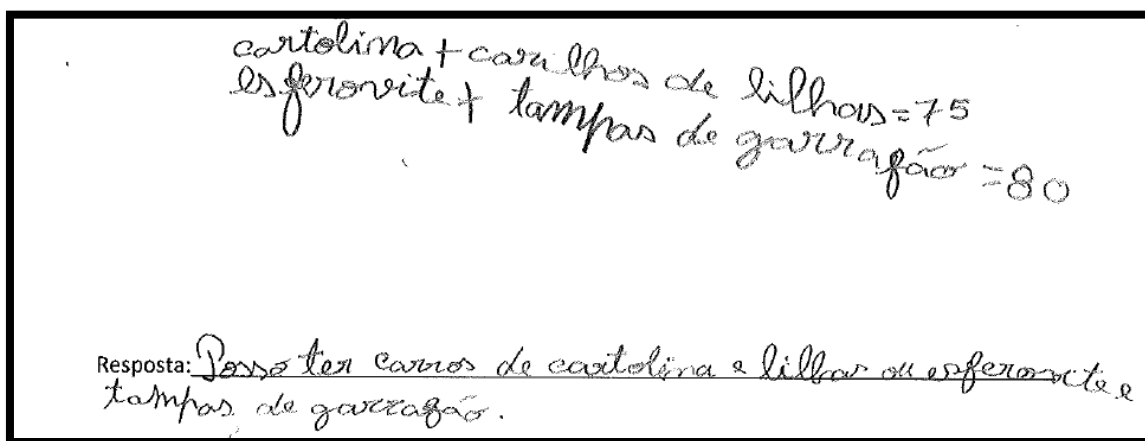 cartolina + carrilhos de lilhas = 75
esferovite + tampas de garrafão = 80
Resposta: Posso ter carros de cartolina e lilhas ou esferovite e
tampas de garrafão.